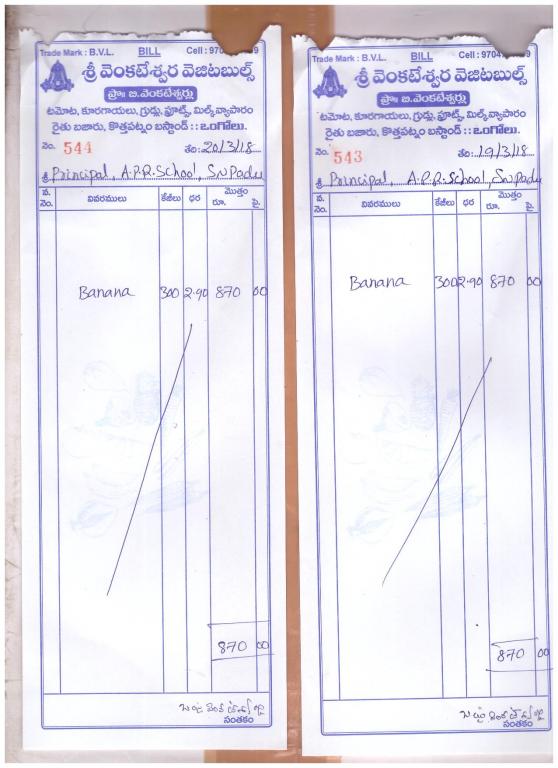 Trade Mark : B.V.L. BILL Cell : 970
శ్రీ వెంకటేశ్వర వెజిటబుల్స్
ప్రొః బి.వెంకటేశ్వర్లు
టమోట, కూరగాయలు, గ్రుడ్లు, ఫ్రూట్స్, మిల్క్ వ్యాపారం
రైతు బజారు, కొత్తపట్నం బస్టాండ్ :: ఒంగోలు.
నెం. 544 తేది: 20/3/18
శ్రీ Principal, A.P.R.School, S.N Padu
వ. నెం. వివరములు కేజీలు ధర మొత్తం రూ. పై.
Banana 300 2.90 870 00
870 00
సంతకం
Trade Mark : B.V.L. BILL Cell : 9704
శ్రీ వెంకటేశ్వర వెజిటబుల్స్
ప్రొః బి.వెంకటేశ్వర్లు
టమోట, కూరగాయలు, గ్రుడ్లు, ఫ్రూట్స్, మిల్క్ వ్యాపారం
రైతు బజారు, కొత్తపట్నం బస్టాండ్ :: ఒంగోలు.
నెం. 543 తేది: 19/3/18
శ్రీ Principal, A.P.R.School, S.N Padu
వ. నెం. వివరములు కేజీలు ధర మొత్తం రూ. పై.
Banana 300 2.90 870 00
870 00
సంతకం